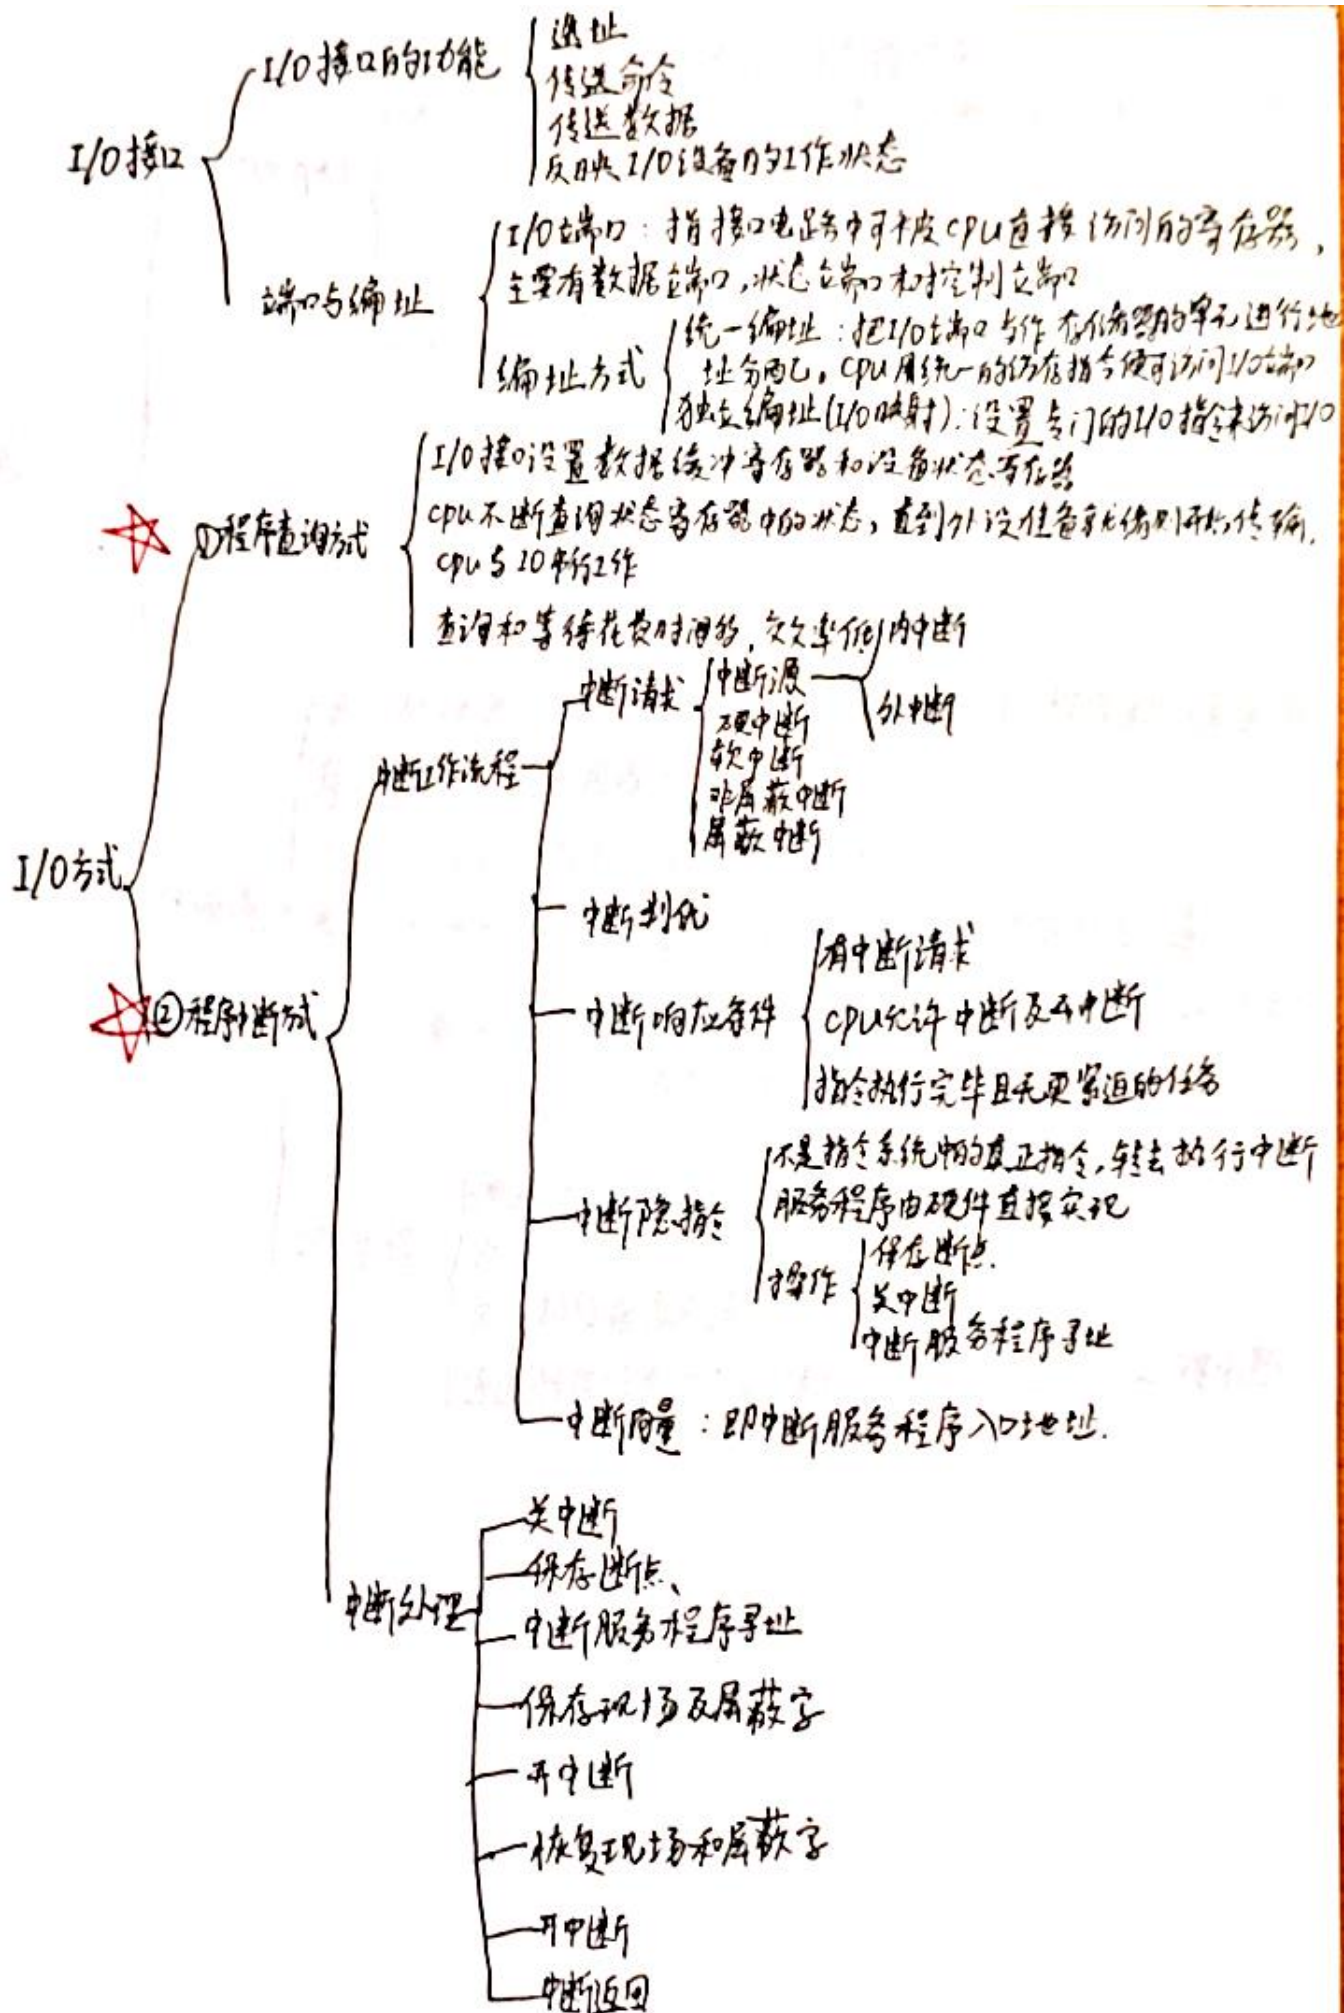 I/O接口
I/O接口的功能
选址
传送命令
传送数据
反映I/O设备的工作状态
端口与编址
I/O端口：指接口电路中可被CPU直接访问的寄存器，
主要有数据端口，状态端口和控制端口
编址方式
统一编址：把I/O端口当作存储器的单元进行地
址分配。CPU用统一的访存指令便可访问I/O端口
独立编址(I/O映射)：设置专门的I/O指令来访问I/O
I/O方式
①程序查询方式
I/O接口设置数据缓冲寄存器和设备状态寄存器
CPU不断查询状态寄存器中的状态，直到外设准备就绪则开始传输.
CPU与IO串行工作
查询和等待花费时间多，效率低
②程序中断方式
中断工作流程
中断请求
中断源
内中断
外中断
硬中断
软中断
非屏蔽中断
屏蔽中断
中断判优
中断响应条件
有中断请求
CPU允许中断及开中断
指令执行完毕且无更紧迫的任务
中断隐指令
不是指令系统中的真正指令，转去执行中断
服务程序由硬件直接实现
操作
保存断点.
关中断
中断服务程序寻址
中断向量：即中断服务程序入口地址.
中断处理
关中断
保存断点、
中断服务程序寻址
保存现场及屏蔽字
开中断
恢复现场和屏蔽字
开中断
中断返回